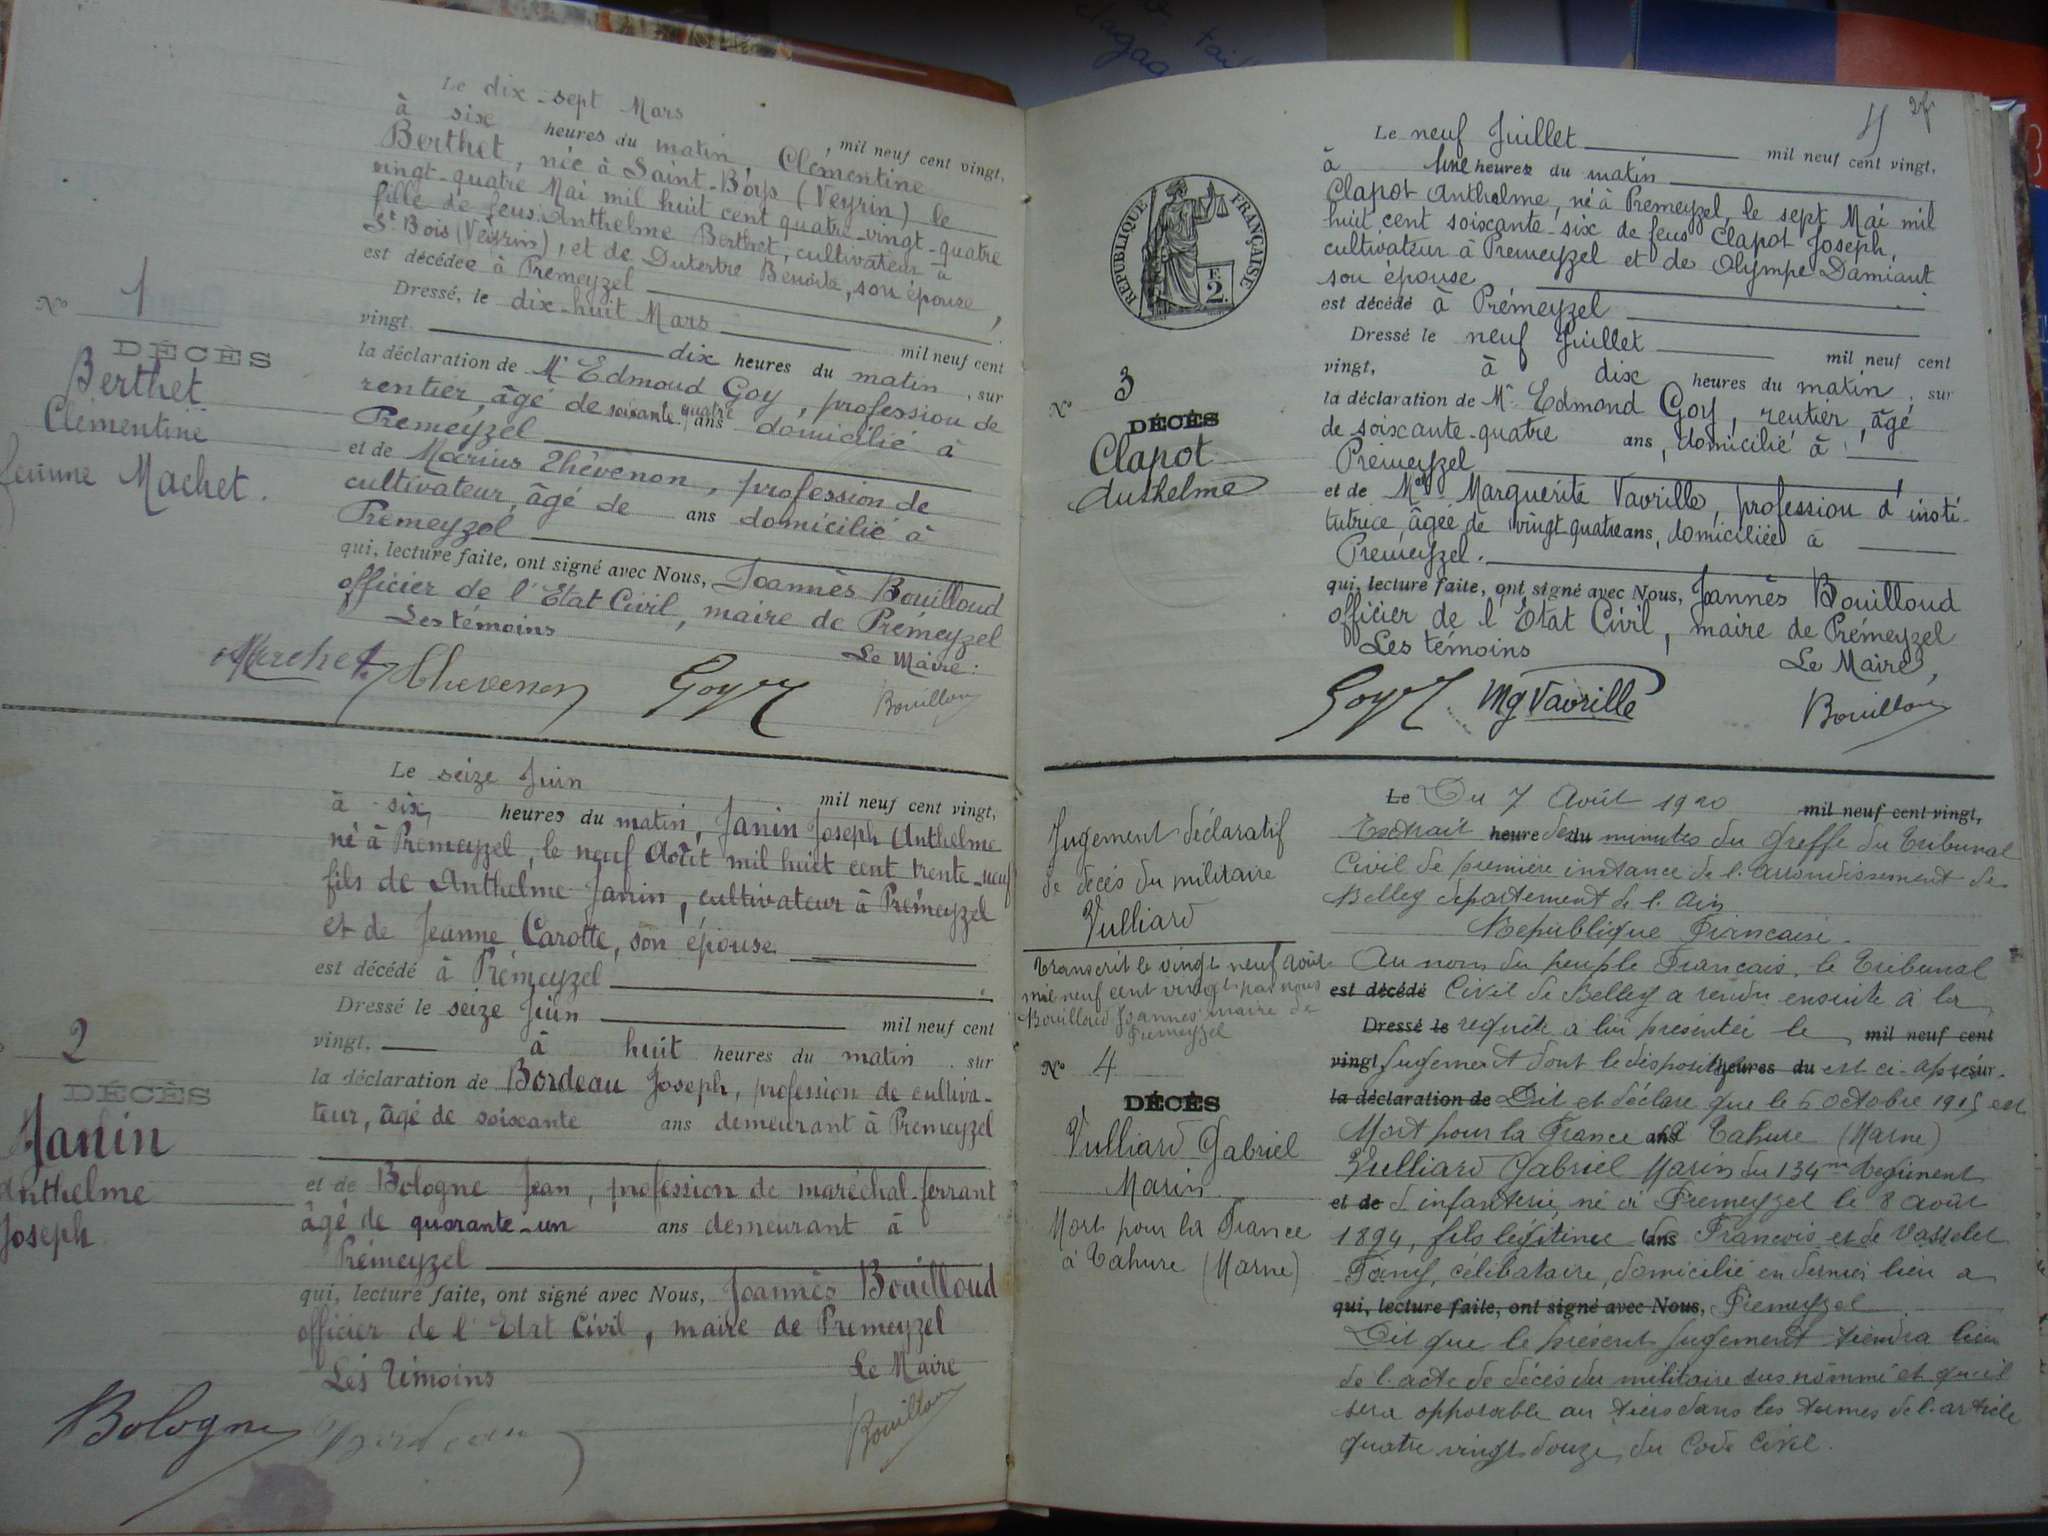 Le dix-sept Mars , mil neuf cent vingt,
à six heures du matin, Clémentine
Berthet, née à Saint-Bóys (Veyrin) le
vingt-quatre Mai mil huit cent quatre-vingt-quatre
fille de feus Anthelme Berthet, cultivateur à
St Bois (Veyrin), et de Dutertre Benoîte, son épouse,
est décédée à Prémeyzel
Dressé, le dix-huit Mars mil neuf cent
vingt. dix heures du matin, sur
la déclaration de Mr Edmond Goy, profession de
rentier, âgé de soixante quatre ans domicilié à
Premeyzel
et de Marius Thévenon, profession de
cultivateur, âgé de ans domicilié à
Prémeyzel
qui, lecture faite, ont signé avec Nous, Joannès Bouilloud
officier de l'Etat Civil, maire de Prémeyzel
Les témoins Le Maire:
Machet Thevenon Goy Bouilloud
No 1
DÉCÈS
Berthet
Clémentine
femme Machet.
Le seize Juin mil neuf cent vingt,
à six heures du matin, Janin Joseph Anthelme
né à Prémeyzel, le neuf Août mil huit cent trente-neuf
fils de Anthelme Janin, cultivateur à Prémeyzel
et de Jeanne Carotte, son épouse
est décédé à Prémeyzel
Dressé le seize Juin mil neuf cent
vingt. à huit heures du matin, sur
la déclaration de Bordeau Joseph, profession de cultiva-
teur, âgé de soixante ans demeurant à Prémeyzel
et de Bologne Jean, profession de maréchal-ferrant
âgé de quarante-un ans demeurant à
Prémeyzel
qui, lecture faite, ont signé avec Nous, Joannès Bouilloud
officier de l'Etat Civil, maire de Prémeyzel
Les témoins Le Maire
Bologne Bordeau Bouilloud
2
DÉCÈS
Janin
Anthelme
Joseph
4
Le neuf Juillet mil neuf cent vingt,
à une heures du matin
Clapot Anthelme, né à Prémeyzel, le sept Mai mil
huit cent soixante-six de feus Clapot Joseph,
cultivateur à Prémeyzel et de Olympe Damiant
son épouse
est décédé à Prémeyzel
Dressé le neuf Juillet mil neuf cent
vingt, à dix heures du matin, sur
la déclaration de Mr Edmond Goy, rentier, âgé
de soixante-quatre ans, domicilié à
Prémeyzel
et de Melle Marguerite Vavrille, profession d'insti-
tutrice âgée de vingt quatre ans, domiciliée à
Prémeyzel.
qui, lecture faite, ont signé avec Nous, Joannès Bouilloud
officier de l'État Civil, maire de Prémeyzel
Les témoins Le Maire,
Goy Mg Vavrille Bouilloud
RÉPUBLIQUE FRANÇAISE
F.
2.
No 3
DÉCÈS
Clapot
Anthelme
Le Du 7 Août 1920 mil neuf cent vingt,
Extrait heure des du minutes du Greffe du Tribunal
Civil de première instance de l'arrondissement de
Belley département de l'Ain
République Francaise.
Au nom du peuple Francais, le Tribunal
est décédé Civil de Belley a rendu ensuite à la
Dressé le requête à lui présentée le mil neuf cent
vingt Jugement dont le dispositif heures du est ci-après sur
la déclaration de Dit et déclare que le 6 Octobre 1915 est
Mort pour la France ans à Tahure (Marne)
Vulliard Gabriel Marin du 134me Regiment
et de d'infanterie, né à Premeyzel le 8 août
1894, fils légitime ans de Francois et de Vasselet
Fany, célibataire, domicilié en dernier lieu à
qui, lecture faite, ont signé avec Nous, Premeyzel
Dit que le présent Jugement tiendra lieu
de l'acte de décès du militaire sus nommé et qu'il
sera opposable au tiers dans les termes de l'article
quatre vingt douze du Code Civil.
Jugement déclaratif
de décès du militaire
Vulliard
Transcrit le vingt neuf Août
mil neuf cent vingt par nous
Bouilloud Joannes maire de
Premeyzel
No 4
DÉCÈS
Vulliard Gabriel
Marin
Mort pour la France
à Tahure (Marne)